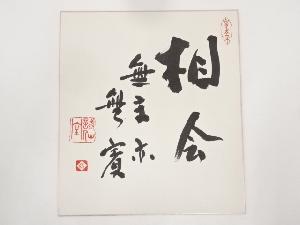 相会
無主亦
無賓